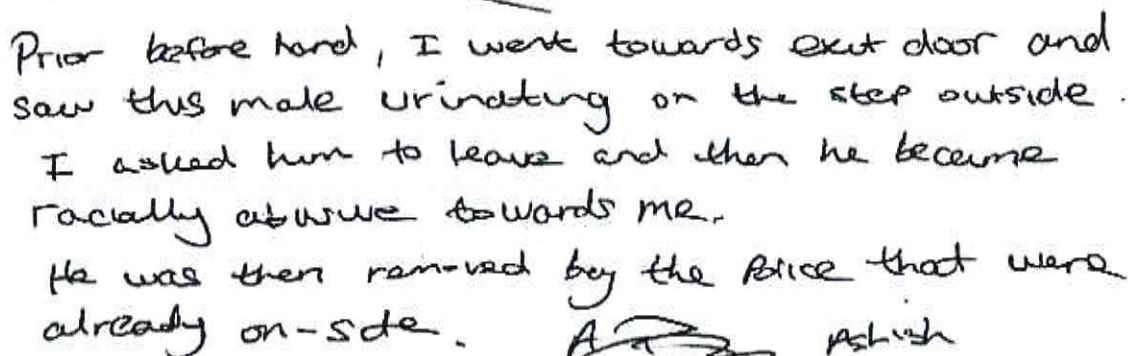 Prior before hand, I went towards exit door and
saw this male urinating on the step outside.
I asked him to leave and then he became
racially abusive towards me.
He was then removed by the Police that were
already on-site. Ashish